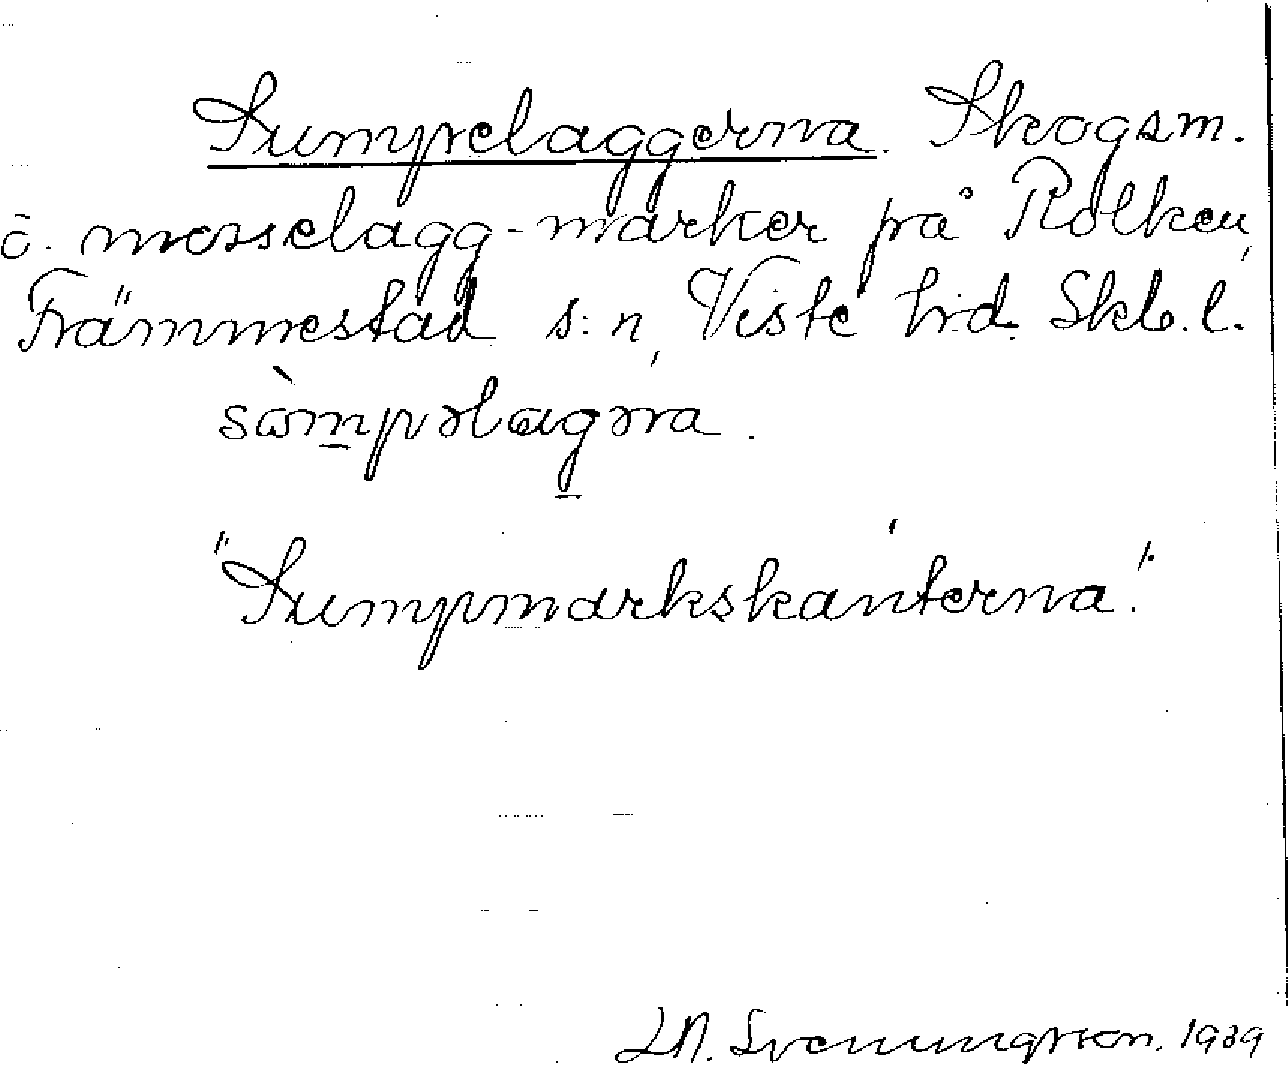 Sumpelaggerna. Skogsm.
o. mosselagg-marker på Rölken,
Främmestad s:n, Viste hd. Skb.l.
sòmpəlagəna.
"Sumpmarkskanterna".
L.N. Svenungsson. 1939